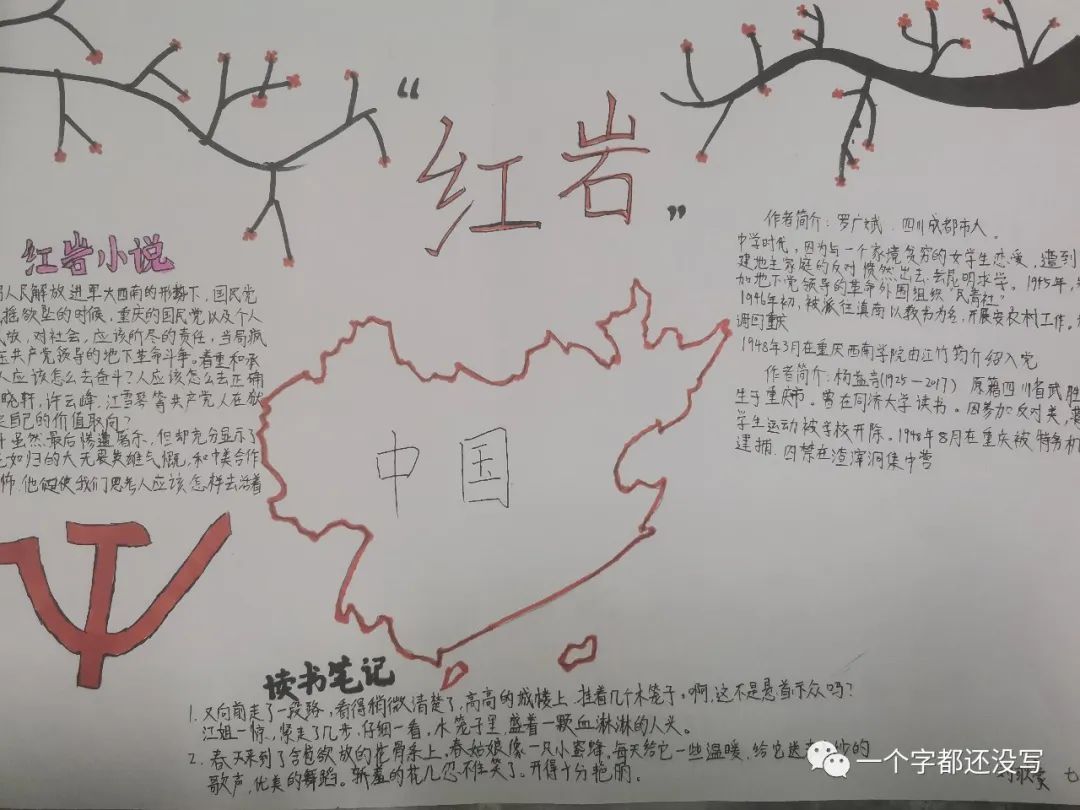 “红岩”
红岩小说
人民解放进军大西南的形势下，国民党
摇欲坠的时候，重庆的国民党以及个人
放，对社会，应该所尽的责任，当局疯
压共产党领导的地下革命斗争。着重和承
人应该怎么去奋斗？人应该怎么去正确
晓轩，许云峰，江雪琴等共产党人在狱
定自己的价值取向？
斗虽然最后惨遭屠杀，但却充分显示了
死如归的大无畏英雄气慨，和中美合作
他促使我们思考人应该怎样去活着
作者简介：罗广斌．四川成都市人。
中学时代，因为与一个家境贫穷的女学生恋爱，遭到
建地主家庭的反对愤然出去，去昆明求学。1945年，
加地下党领导的革命外国组织“民青社”
1946年初，被派往滇南以教书为名，开展安农村工作，
调回重庆
1948年3月在重庆西南学院由江竹筠介绍入党
作者简介：杨益言(1925—2017) 原籍四川省武胜
生于重庆市。曾在同济大学读书。因参加反对美，
学生运动被学校开除。1948年8月在重庆被特务机
逮捕．囚禁在渣滓洞集中营
中国
读书笔记
1. 又向前走了一段路，看得稍微清楚了，高高的城楼上，挂着几个木笼子。啊，这不是悬首示众吗？
江姐一惊，紧走了几步，仔细一看，木笼子里，盛着一颗血淋淋的人头。
2. 春天来到了含苞欲放的花骨朵上。春姑娘像一只小蜜蜂。每天给它一些温暖，给它送去 妙的
歌声，优美的舞蹈。娇羞的花儿忍不住笑了。开得十分艳丽。
一个字都还没写
七